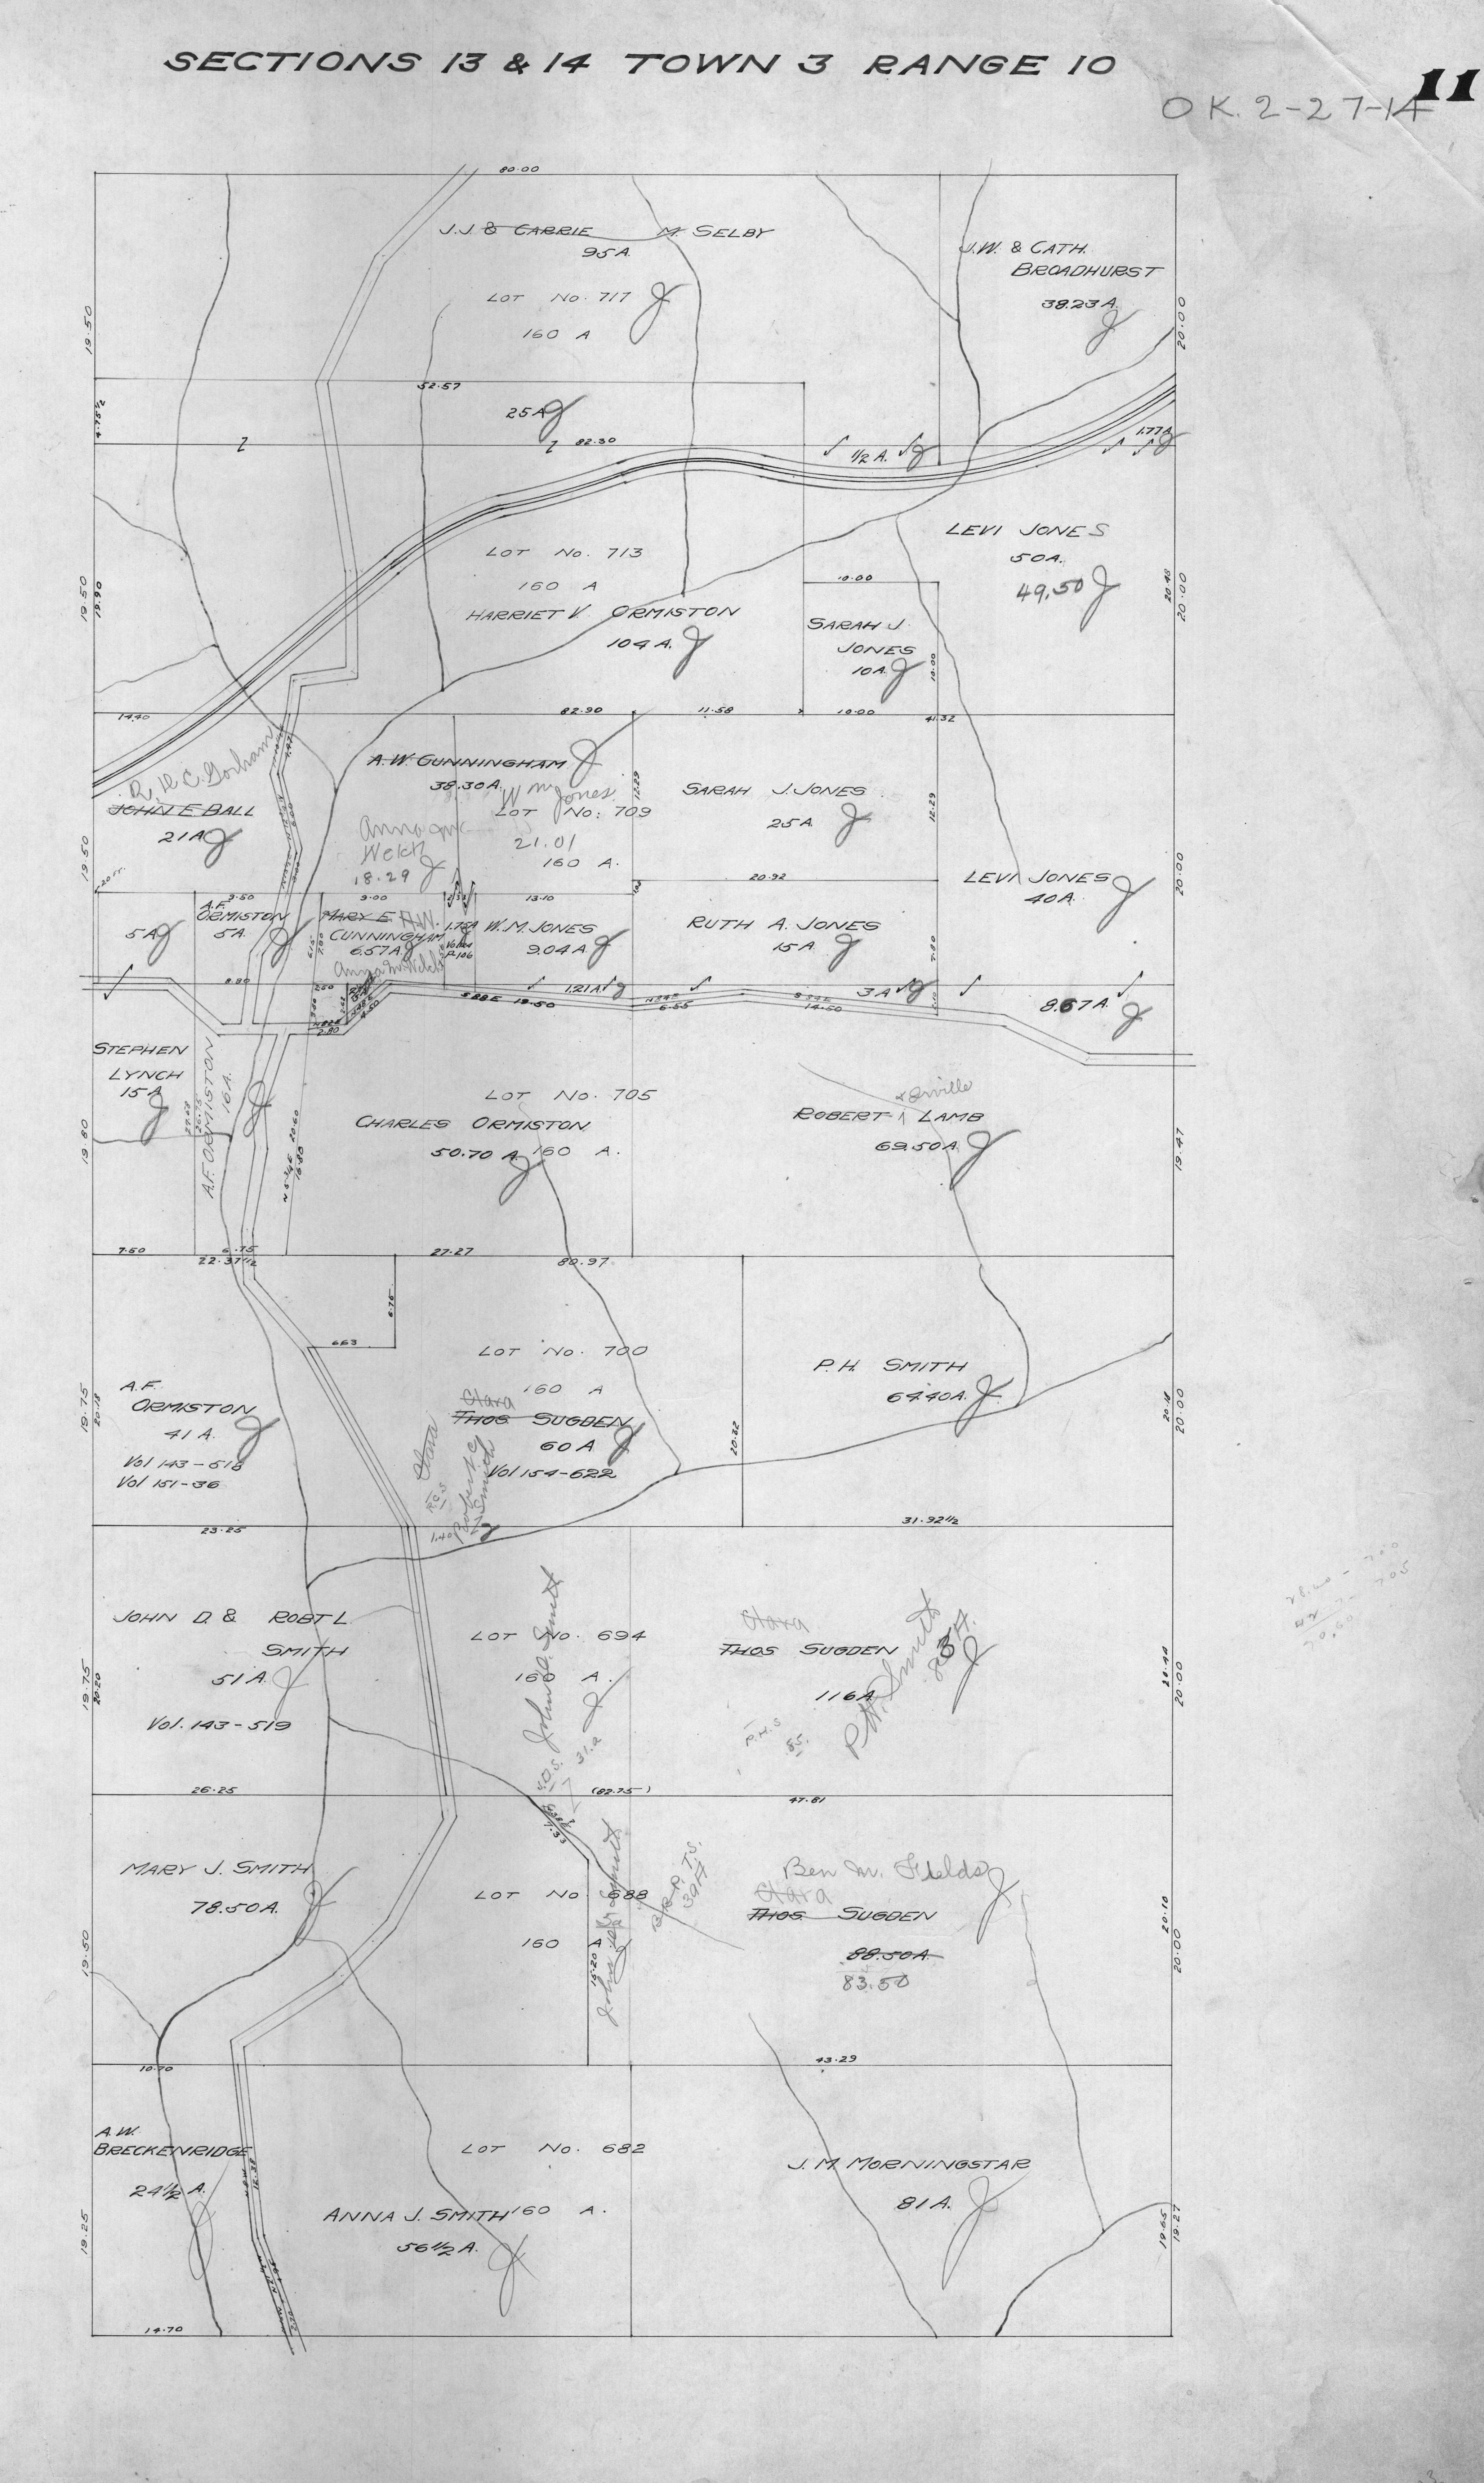 SECTIONS 13 & 14 TOWN 3 RANGE 10
11
O K. 2-27-14
80.00
J.J. & CARRIE M. SELBY
95A.
LOT No. 717
160 A
J.W. & CATH.
BROADHURST
38.23 A.
19.50
20.00
52.57
4.75½
25A
82.30
½ A.
1.77A
LOT No. 713
160 A
HARRIET V. ORMISTON
104 A.
LEVI JONES
50A.
49.50
10.00
SARAH J.
JONES
10A.
10.00
19.50
19.90
20.48
20.00
14.40
82.90
11.58
10.00
41.32
R. H. C. Gorham
JOHN E BALL
21A
A.W. CUNNINGHAM
38.30A.
Wm Jones
LOT No. 709
21.01
160 A.
Anna Mc
Welch
18.29
12.29
SARAH J. JONES
25A
12.29
20.92
19.50
20.00
LEVI JONES
40A.
9.50
9.00
13.10
5A
A.F.
ORMISTON
5A.
MARY E. A.W.
CUNNINGHAM
6.57A
Anna M. Welch
1.75A
W.M. JONES
9.04A
RUTH A. JONES
15A
7.00
8.80
2.50
S 88 E 19.50
1.21A
N 84 E
6.55
S 84 E
14.50
3A
8.67A
STEPHEN
LYNCH
15A
A.F. ORMISTON
16A.
LOT No. 705
CHARLES ORMISTON
50.70 A.
160 A.
& Orville
ROBERT LAMB
69.50A.
19.80
19.47
N 5¾ E 20.60
16.80
7.50
6.75
22.37½
27.27
80.97
6.75
6.63
A.F.
ORMISTON
41 A.
Vol 143-518
Vol 151-36
LOT No. 700
160 A
Clara
THOS SUGDEN
60 A
Vol 154-622
Clara
R.C.S
Robert C
Smith
1.40
P.H. SMITH
64.40A.
20.32
19.75
20.18
20.18
20.00
23.25
31.92½
JOHN D. & ROBT L
SMITH
51 A.
Vol. 143-519
LOT No. 694
160 A.
John D. Smith
J.D.S.
31.a
Clara
THOS SUGDEN
116A
P.H. Smith
83A.
P.H.S
85.
19.75
20.20
20.44
20.00
26.25
(82.75)
47.81
MARY J. SMITH
78.50A.
LOT No. 688
160 A
15.20
Ben M. Fields
Clara
THOS SUGDEN
88.50A
83.50
19.50
20.10
20.00
10.70
43.29
A.W.
BRECKENRIDGE
24½ A.
LOT No. 682
ANNA J. SMITH 160 A.
56½ A.
J.M. MORNINGSTAR
81A.
19.25
19.65
19.27
14.70